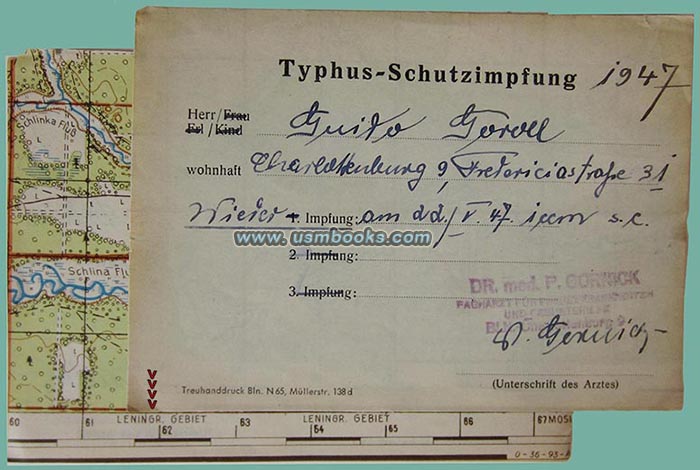 Typhus-Schutzimpfung 1947
Herr/Frau Guido
Frl/Kind
wohnhaft Charlottenburg 9, Fredericiastraße 31
Wieder 1. Impfung: am V. 47. 1ccm s.c.
www.usmbooks.com
2. Impfung:
3. Impfung:
DR. med. P. GORNICK
FACHARZT FÜR
UND
(Unterschrift des Arztes)
Treuhanddruck Bln. N65, Müllerstr. 138d
Schlinka Fluß
Schlina Fluß
LENINGR. GEBIET LENINGR. GEBIET
60 61 62 63 64 65 66 67
O-36-93-